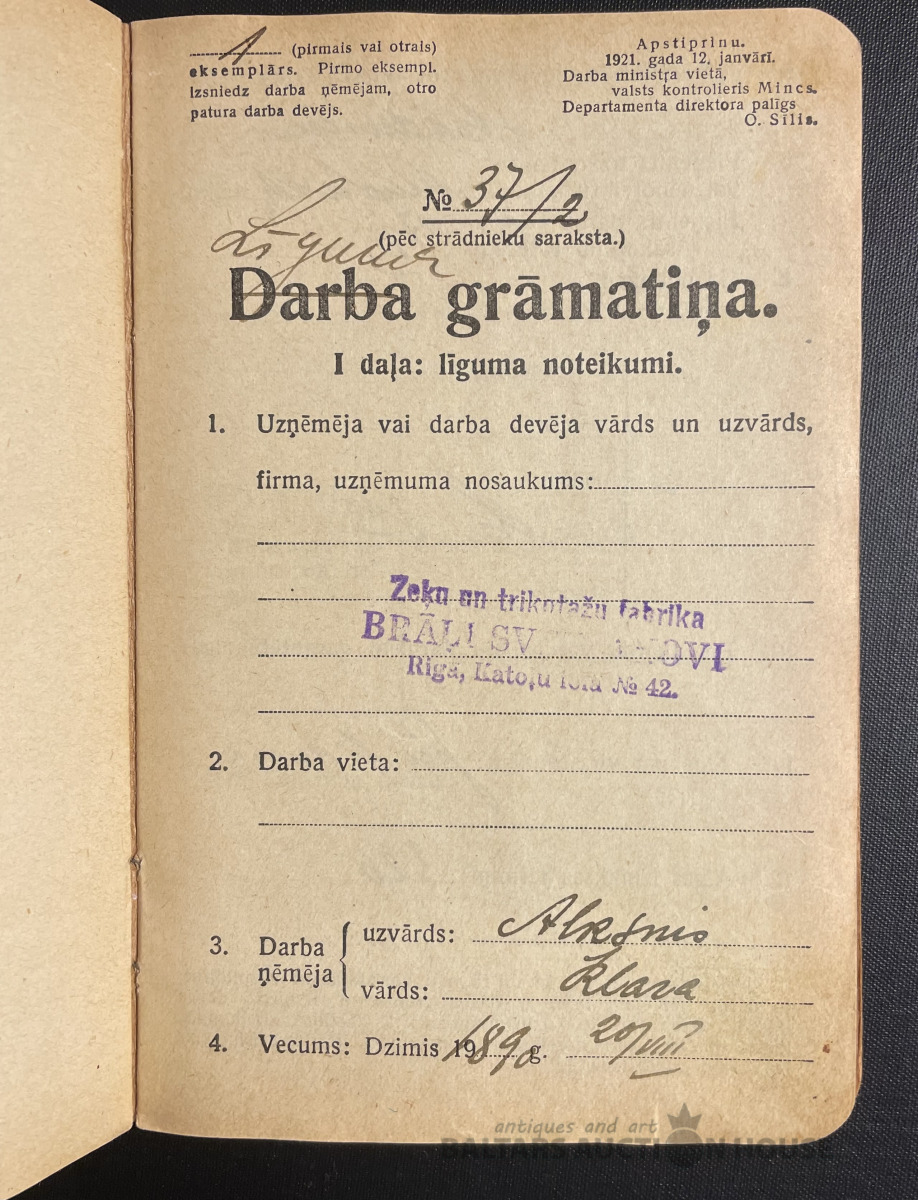 1 (pirmais vai otrais)
eksemplārs. Pirmo eksempl.
izsniedz darba ņēmējam, otro
patura darba devējs.
Apstiprinu.
1921. gada 12. janvārī.
Darba ministra vietā,
valsts kontrolieris Mincs.
Departamenta direktora palīgs
O. Silis.
№ 37/2
(pēc strādnieku saraksta.)
Darba grāmatiņa.
I daļa: līguma noteikumi.
1. Uzņēmēja vai darba devēja vārds un uzvārds,
firma, uzņēmuma nosaukums:
Zeķu un trikotažu fabrika
BRĀĻI
Rīgā, Katoļu ielā № 42.
2. Darba vieta:
3. Darba ņēmēja
uzvārds: Alksnis
vārds: Klara
4. Vecums: Dzimis 1890 g. 20/VIII
antiques and art
BALTARS AUCTION HOUSE